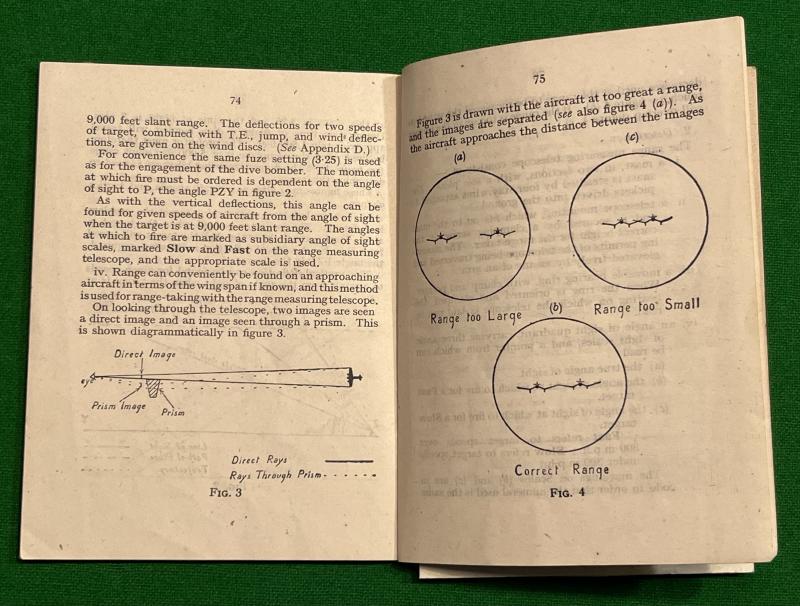 74
9,000 feet slant range. The deflections for two speeds
of target, combined with T.E., jump, and wind deflec-
tions, are given on the wind discs. (See Appendix D.)
For convenience the same fuze setting (3·25) is used
as for the engagement of the dive bomber. The moment
at which fire must be ordered is dependent on the angle
of sight to P, the angle PZY in figure 2.
As with the vertical deflections, this angle can be
found for given speeds of aircraft from the angle of sight
when the target is at 9,000 feet slant range. The angles
at which to fire are marked as subsidiary angle of sight
scales, marked Slow and Fast on the range measuring
telescope, and the appropriate scale is used.
iv. Range can conveniently be found on an approaching
aircraft in terms of the wing span if known, and this method
is used for range-taking with the range measuring telescope.
On looking through the telescope, two images are seen
a direct image and an image seen through a prism. This
is shown diagrammatically in figure 3.
Direct Image
eye
Prism Image
Prism
Direct Rays
Rays Through Prism
FIG. 3
75
Figure 3 is drawn with the aircraft at too great a range,
and the images are separated (see also figure 4 (a)). As
the aircraft approaches the distance between the images
(a)
(c)
Range too Large
Range too Small
(b)
Correct Range
FIG. 4